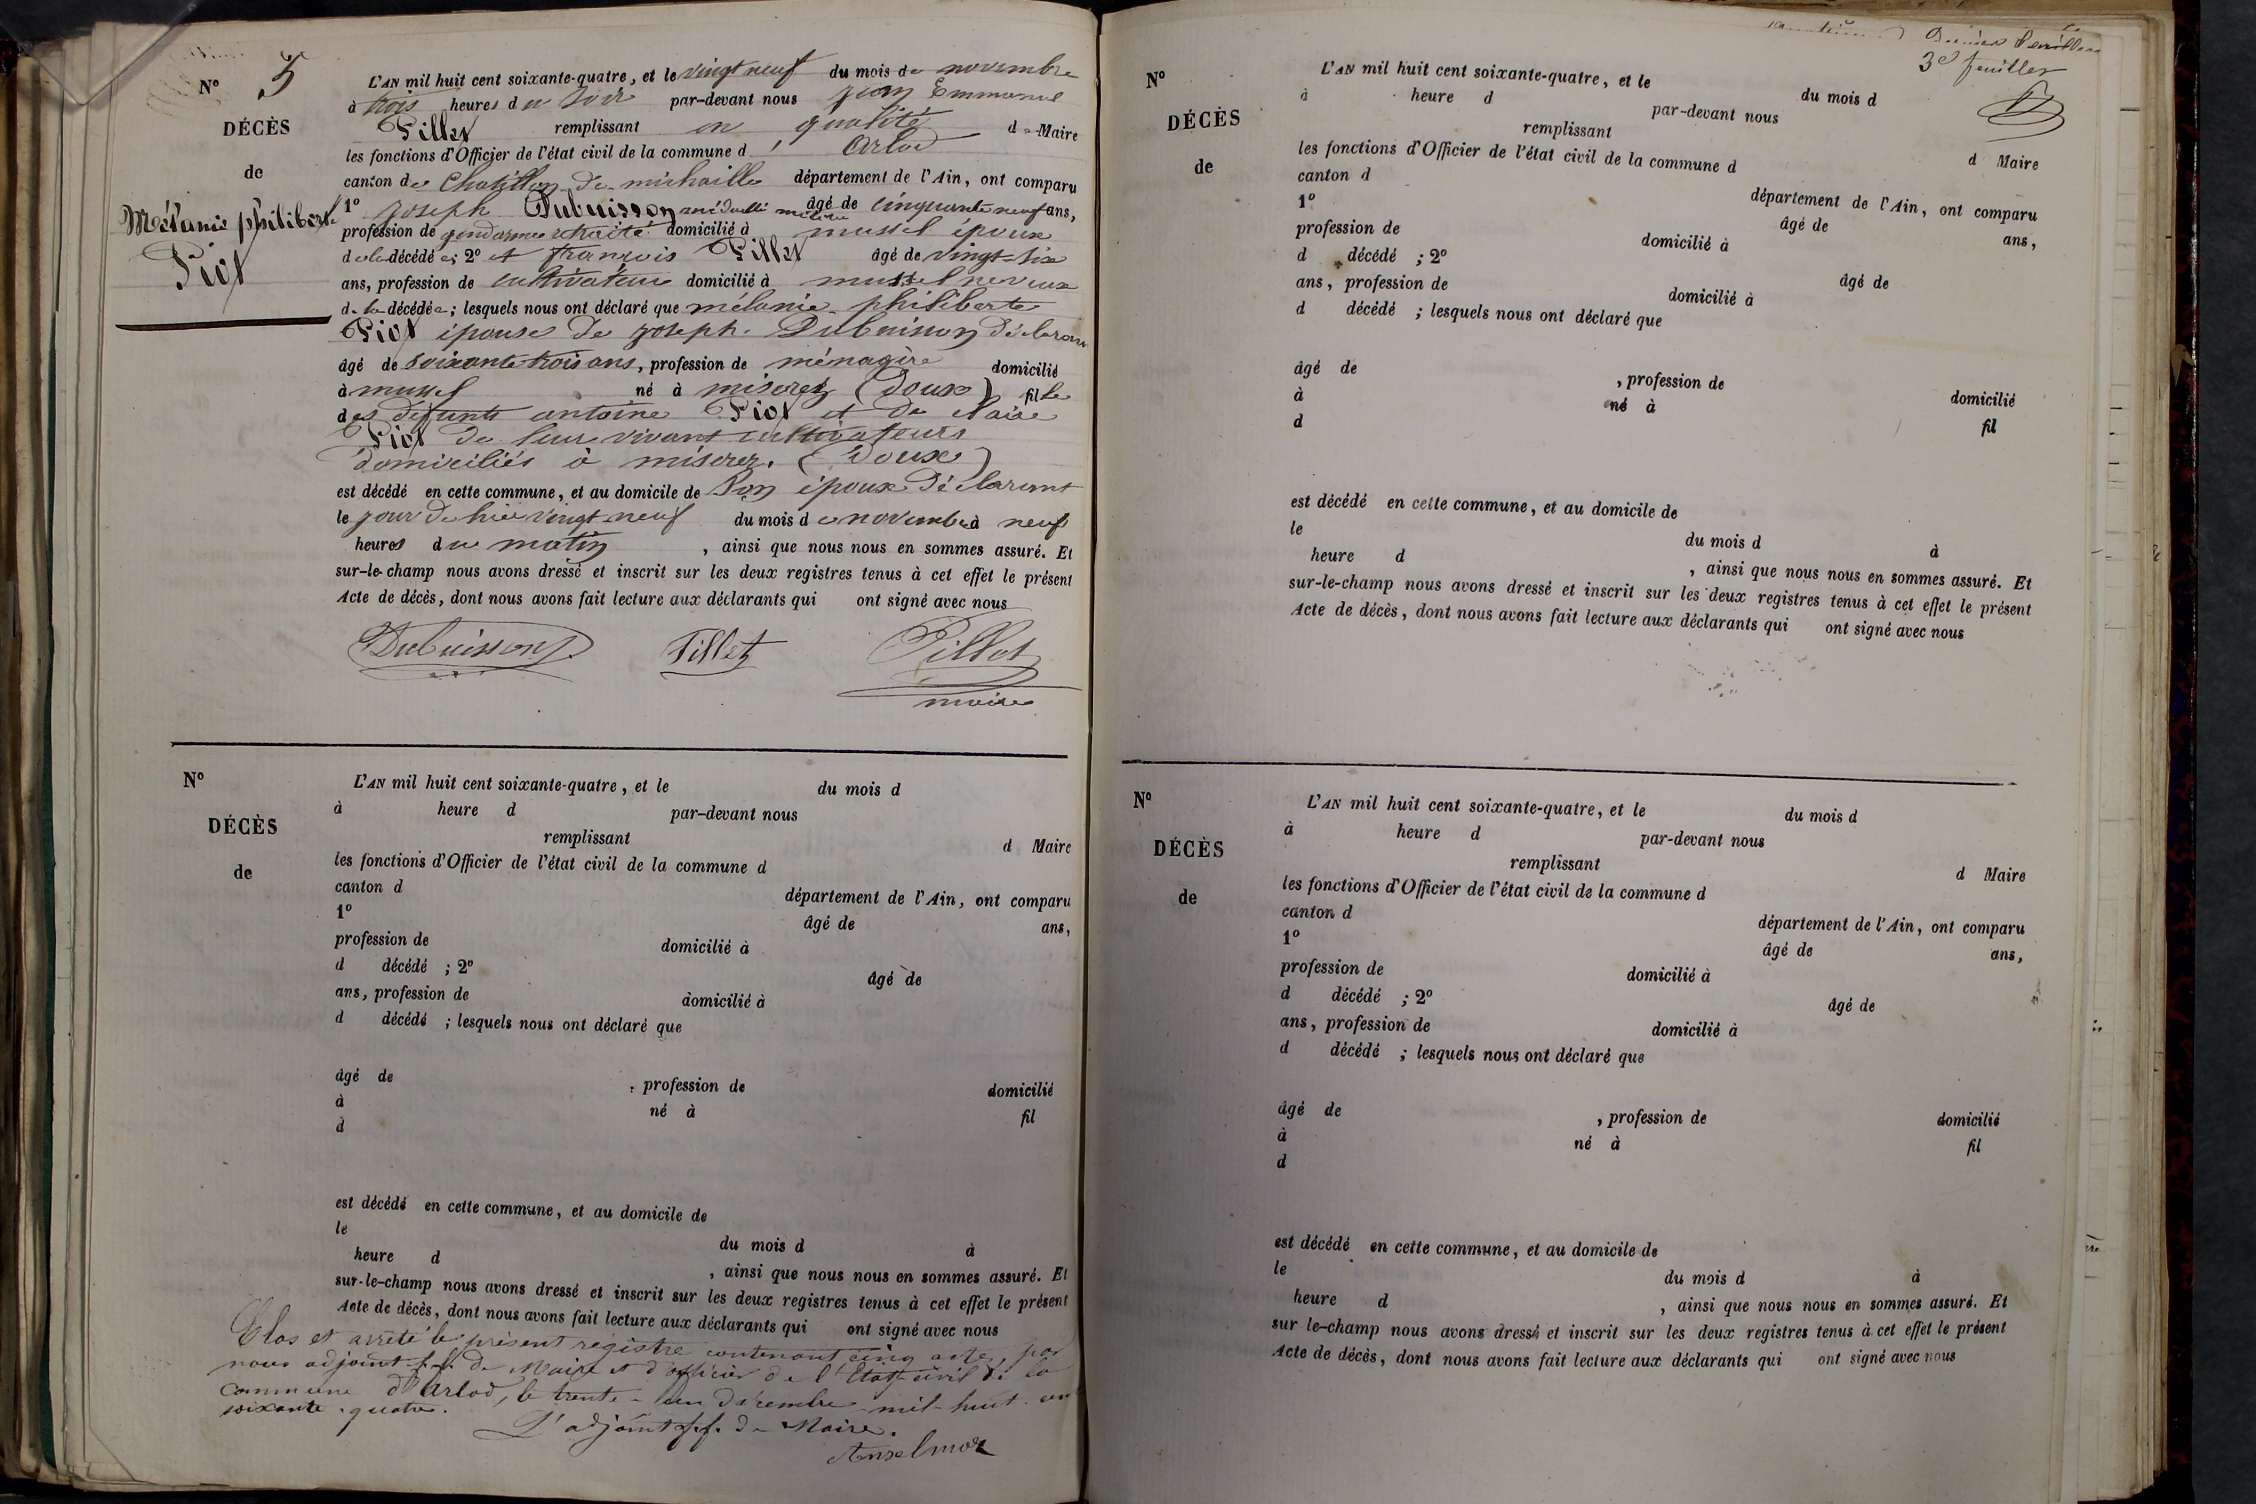 N° 5
DÉCÈS
de
Mélanie philiberte
Piot
L'AN mil huit cent soixante-quatre, et le vingt neuf du mois de novembre
à trois heures du soir par-devant nous jean Emmanuel
Pillet remplissant en qualité de Maire
les fonctions d'Officier de l'état civil de la commune d' Arlod
canton de Chatillon de michaille département de l'Ain, ont comparu
1° joseph Dubuisson médaillé militaire âgé de cinquante neuf ans,
profession de gendarme retraité domicilié à mussel époux
de la décédée; 2° et françois Pillet âgé de vingt-six
ans, profession de cultivateur domicilié à mussel neveux
de la décédée; lesquels nous ont déclaré que mélanie philiberte
Piot épouse de joseph Dubuisson déclarant
âgé de soixante trois ans, profession de ménagère domicilié
à mussel né à miserez (Doux) fille
des défunts antoine Piot et de Claire
Piot de leur vivant cultivateurs
domiciliés à miserez. (Doux)
est décédé en cette commune, et au domicile de Son époux déclarant
le jour de hier vingt neuf du mois de novembre à neuf
heures du matin, ainsi que nous nous en sommes assuré. Et
sur-le-champ nous avons dressé et inscrit sur les deux registres tenus à cet effet le présent
Acte de décès, dont nous avons fait lecture aux déclarants qui ont signé avec nous
Dubuisson Pillet Pillet
maire
N°
DÉCÈS
de
L'AN mil huit cent soixante-quatre, et le du mois d
à heure d par-devant nous
remplissant d Maire
les fonctions d'Officier de l'état civil de la commune d
canton d département de l'Ain, ont comparu
1° âgé de ans,
profession de domicilié à
d décédé ; 2° âgé de
ans, profession de domicilié à
d décédé ; lesquels nous ont déclaré que
âgé de , profession de domicilié
à né à fil
d
est décédé en cette commune, et au domicile de
le du mois d à
heure d , ainsi que nous nous en sommes assuré. Et
sur-le-champ nous avons dressé et inscrit sur les deux registres tenus à cet effet le présent
Acte de décès, dont nous avons fait lecture aux déclarants qui ont signé avec nous
Clos et arrêté le présent registre contenant cinq acte, par
nous adjoint f.f. de Maire et d'officier de l'Etat civil de la
commune d'Arlod, le trente-un décembre mil-huit-cent
soixante-quatre.
L'adjoint f.f. de Maire.
Anselmoz
3e feuillet
N°
DÉCÈS
de
L'AN mil huit cent soixante-quatre, et le du mois d
à heure d par-devant nous
remplissant d Maire
les fonctions d'Officier de l'état civil de la commune d
canton d département de l'Ain, ont comparu
1° âgé de ans,
profession de domicilié à
d décédé ; 2° âgé de
ans, profession de domicilié à
d décédé ; lesquels nous ont déclaré que
âgé de , profession de domicilié
à né à fil
d
est décédé en cette commune, et au domicile de
le du mois d à
heure d , ainsi que nous nous en sommes assuré. Et
sur-le-champ nous avons dressé et inscrit sur les deux registres tenus à cet effet le présent
Acte de décès, dont nous avons fait lecture aux déclarants qui ont signé avec nous
N°
DÉCÈS
de
L'AN mil huit cent soixante-quatre, et le du mois d
à heure d par-devant nous
remplissant d Maire
les fonctions d'Officier de l'état civil de la commune d
canton d département de l'Ain, ont comparu
1° âgé de ans,
profession de domicilié à
d décédé ; 2° âgé de
ans, profession de domicilié à
d décédé ; lesquels nous ont déclaré que
âgé de , profession de domicilié
à né à fil
d
est décédé en cette commune, et au domicile de
le du mois d à
heure d , ainsi que nous nous en sommes assuré. Et
sur le-champ nous avons dressé et inscrit sur les deux registres tenus à cet effet le présent
Acte de décès, dont nous avons fait lecture aux déclarants qui ont signé avec nous